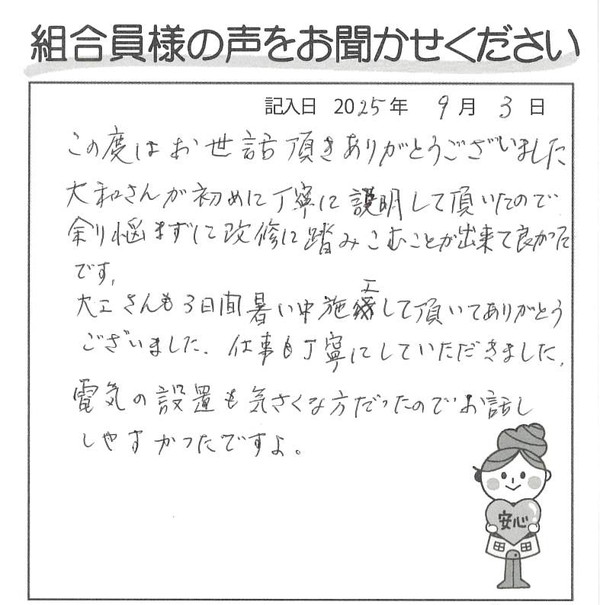 組合員様の声をお聞かせください
記入日 2025年 9月 3日
この度はお世話頂きありがとうございました
大和さんが初めに丁寧に説明して頂いたので
余り悩まずに改修に踏みこむことが出来て良かった
です。
大工さんも3日間暑い中施工して頂いてありがとう
ございました。仕事も丁寧にしていただきました。
電気の設置も気さくな方だったのでお話し
しやすかったですよ。
安心